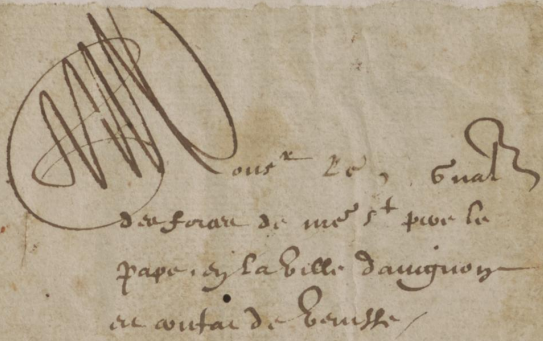 Monsr Le Gnal
des forces de mre St pere le
pape en la ville davignon
et contat de Venisse